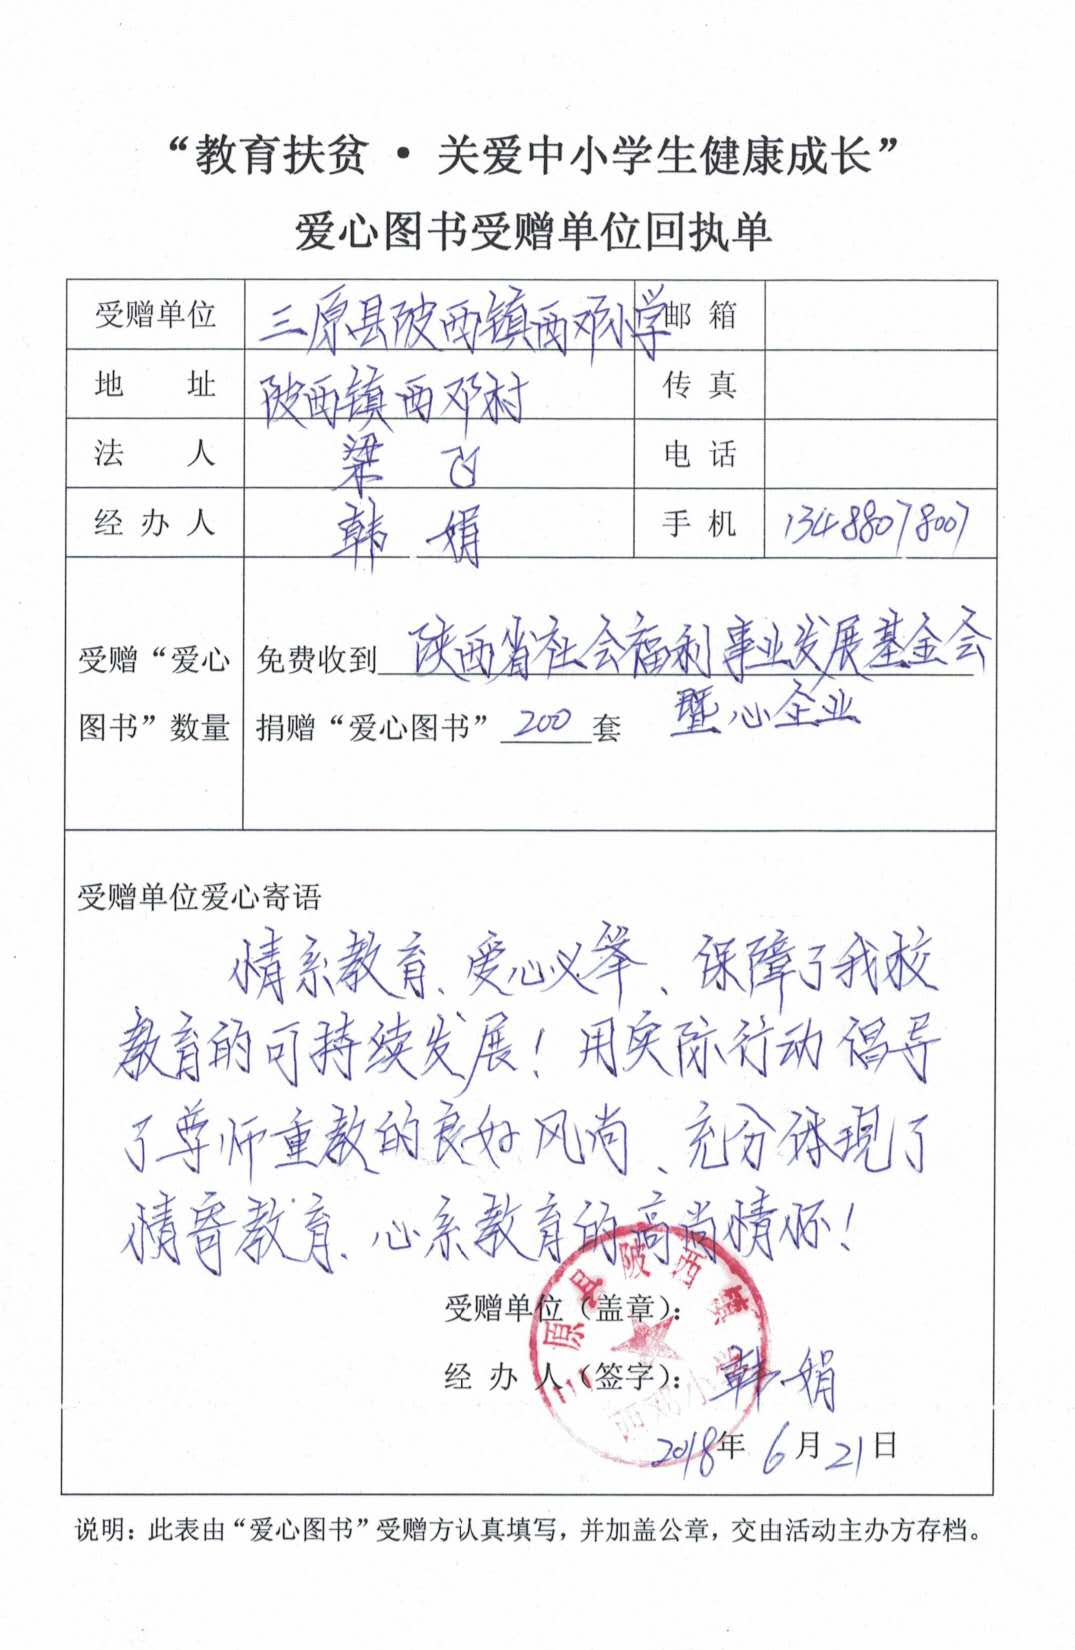 “教育扶贫 · 关爱中小学生健康成长”
爱心图书受赠单位回执单
受赠单位 三原县陂西镇西邓小学 邮箱
地址 陂西镇西邓村 传真
法人 梁 电话
经办人 韩娟 手机 13488078007
受赠“爱心 免费收到 陕西省社会福利事业发展基金会
暨心企业
图书”数量 捐赠“爱心图书” 200 套
受赠单位爱心寄语
情系教育、爱心义举、保障了我校
教育的可持续发展！用实际行动倡导
了尊师重教的良好风尚、充分体现了
情寄教育、心系教育的高尚情怀！
三原县陂西镇
西邓小学
受赠单位（盖章）：
经办人（签字）： 韩娟
2018年6月21日
说明：此表由“爱心图书”受赠方认真填写，并加盖公章，交由活动主办方存档。